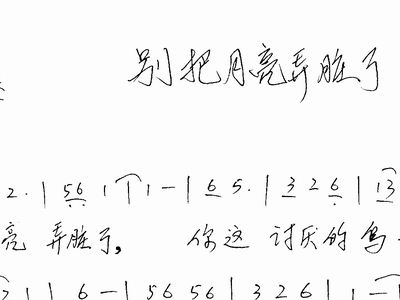 别把月亮弄脏了
2· | 56 1 1 | 1 - | 6 5· | 3 2 6 | 13
亮 弄脏了, 你这 讨厌的 鸟
1 | 6 - | 56 56 | 3 2 6 | 1 -